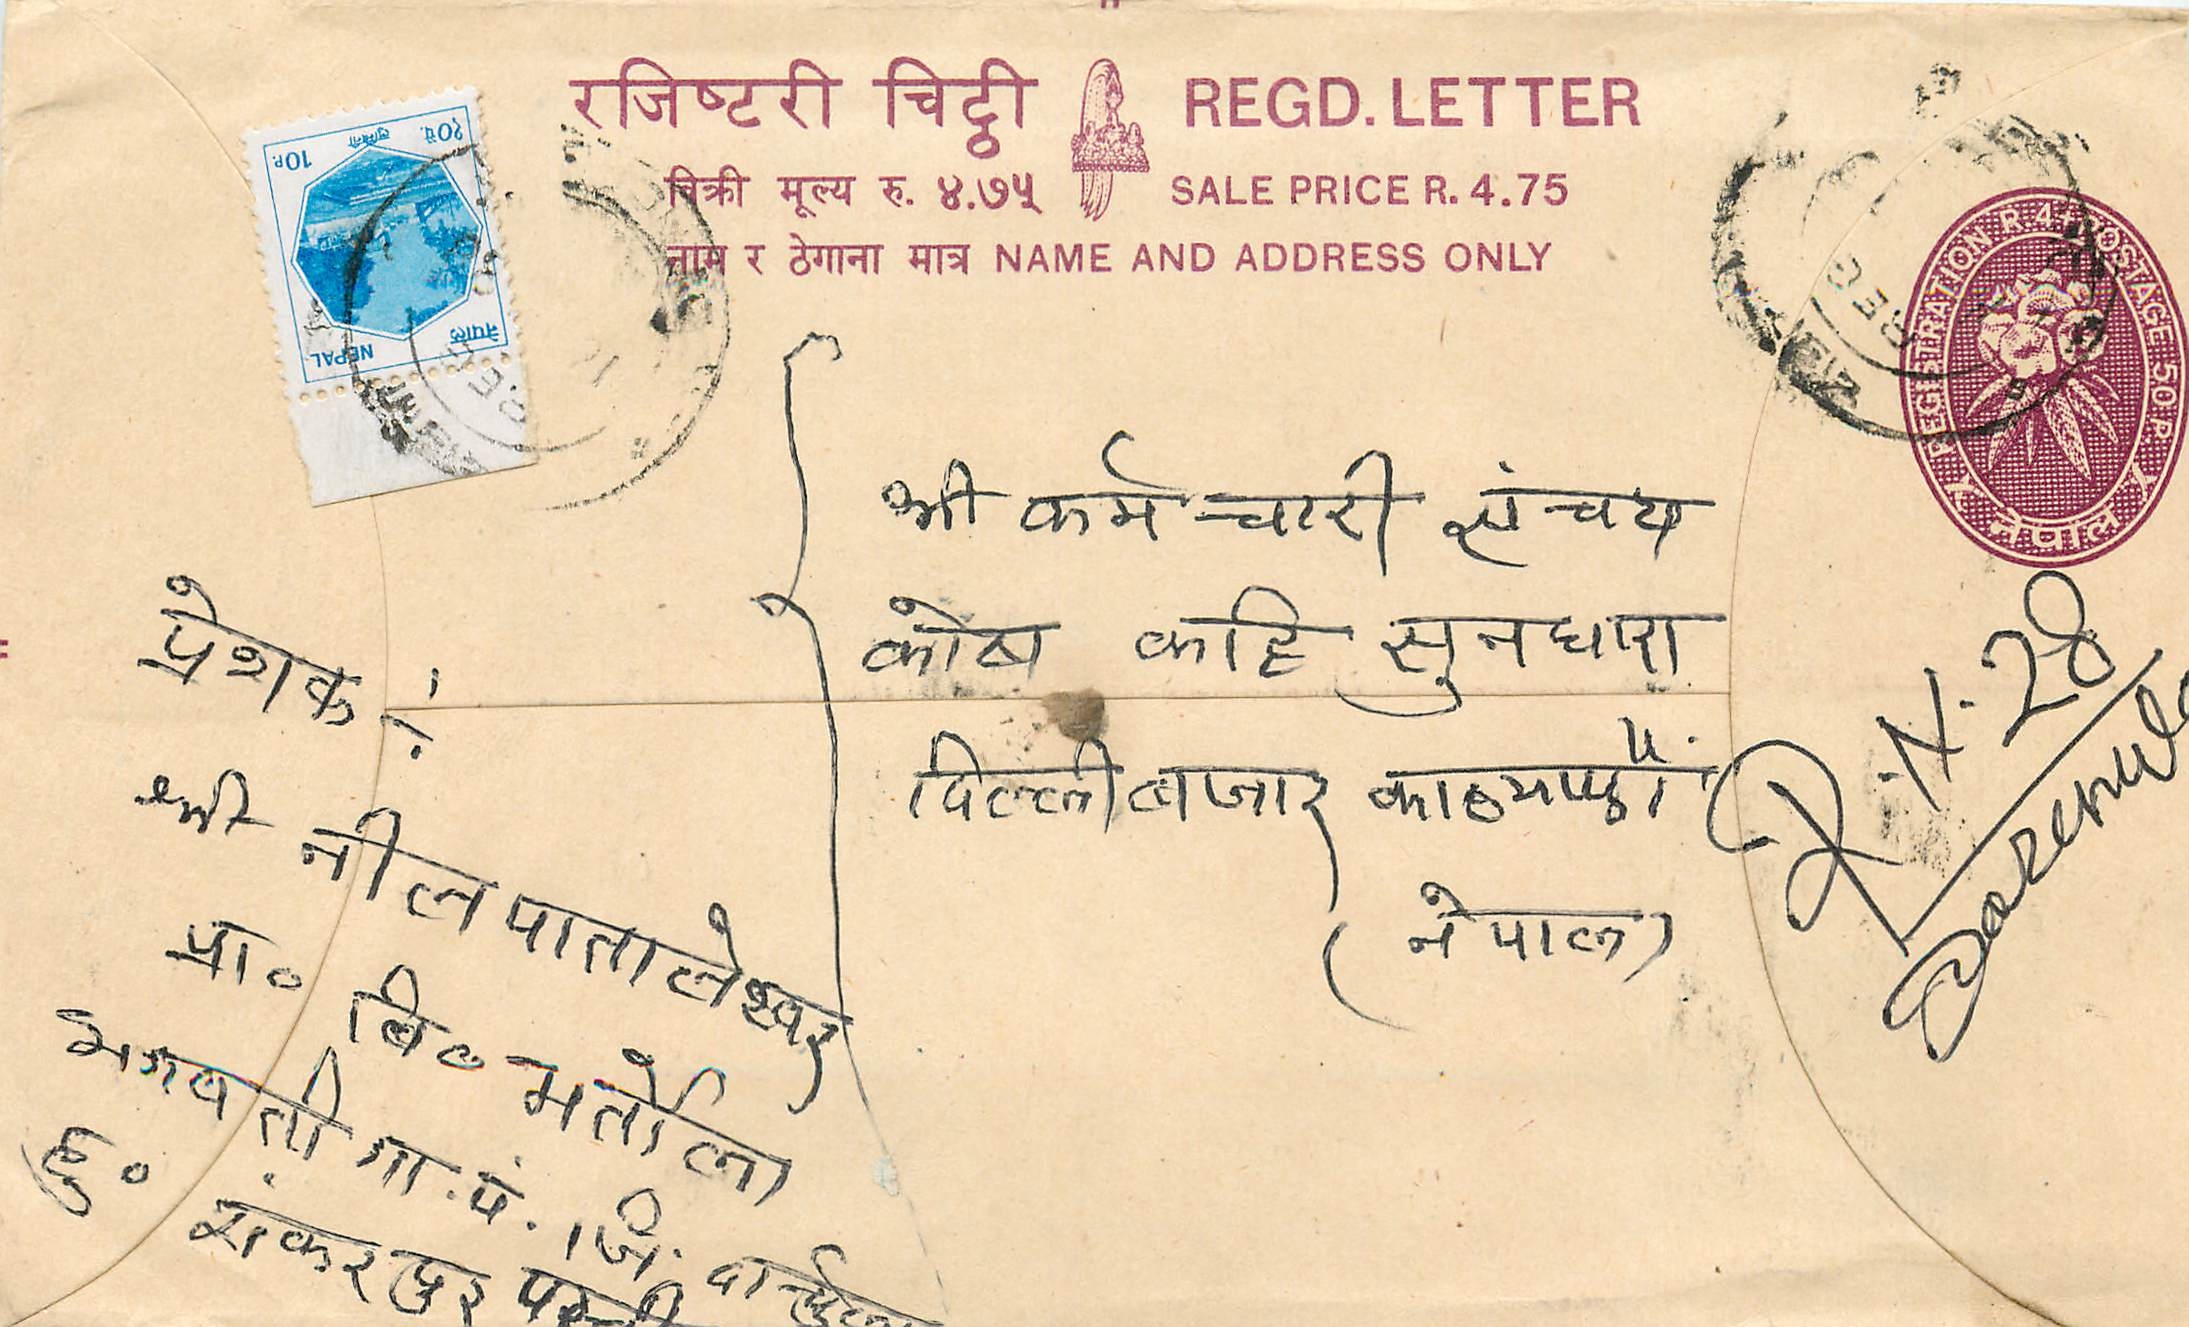 रजिष्टरी चिट्ठी REGD. LETTER
बिक्री मूल्य रु. ४.७५ SALE PRICE R. 4.75
नाम र ठेगाना मात्र NAME AND ADDRESS ONLY
१०पै. लुम्बिनी 10P.
नेपाल NEPAL
REGISTRATION R. 4+POSTAGE 50P.
नेपाल
श्री कर्मचारी संचय
कोष सुनधारा
दिल्लीबजार काठमाण्डौं
(नेपाल)
R.N. 28
प्रेशक :
श्री नील पातालेश्वर
प्रा० बि० मर्तोला
भगवती गा.पं. जि. दार्चुला
हु० संकरपुर